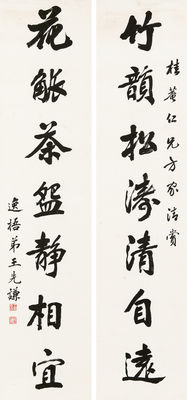 桂菴仁兄方家清賞
竹韻松濤清自遠
花觚茶盌靜相宜
逸梧弟王先謙